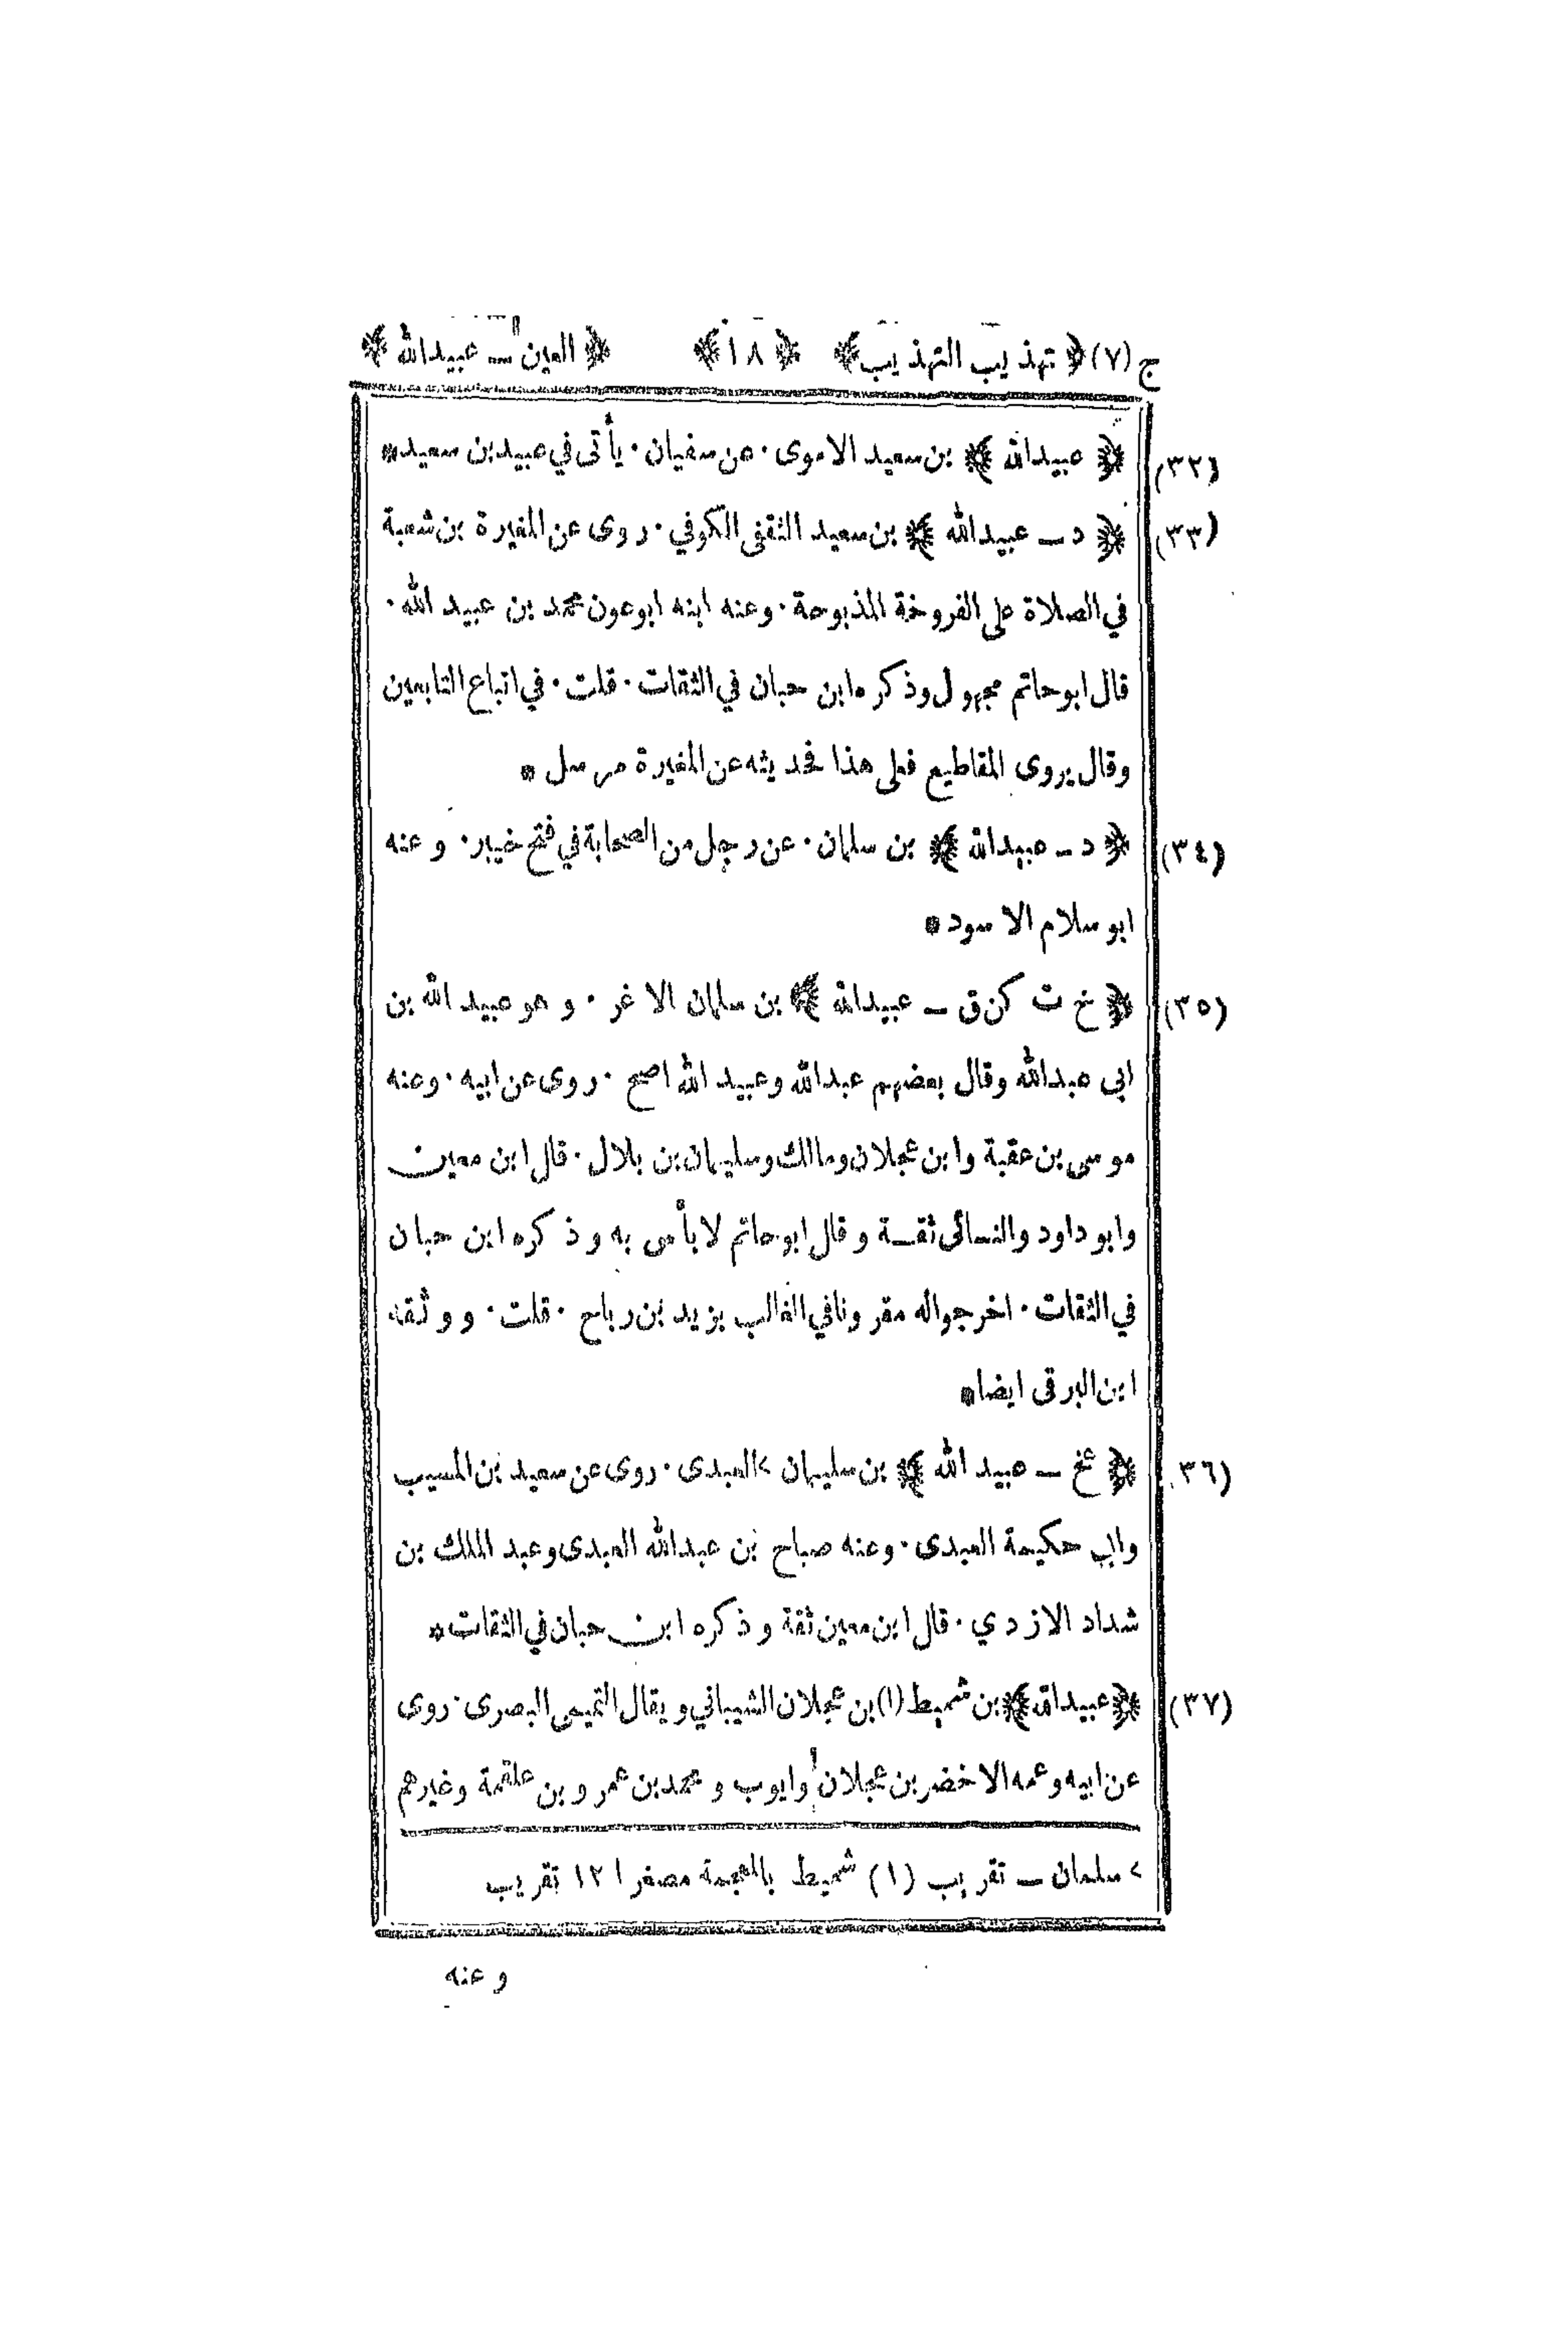 ج (٧) ﴿ تهذيب التهذيب ﴾ ﴿ ١٨ ﴾ ﴿ العين ــ عبيدالله ﴾
(٣٢) ﴿ عبيدالله ﴾ بن سعيد الاموى · عن سفيان · يأتى في عبيد بن سعيد *
(٣٣) ﴿ د ــ عبيدالله ﴾ بن سعيد الثقفى الكوفي · روى عن المغيرة بن شعبة
في الصلاة على الفروخة المذبوحة · وعنه ابنه ابوعون محمد بن عبيد الله ·
قال ابوحاتم مجهول وذكره ابن حبان في الثقات · قلت · في اتباع التابعين
وقال يروى المقاطيع فعلى هذا فحديثه عن المغيرة مرسل *
(٣٤) ﴿ د ــ عبيدالله ﴾ بن سلمان · عن رجل من الصحابة في فتح خيبر · وعنه
ابو سلام الاسود *
(٣٥) ﴿ خ ت كن ق ــ عبيدالله ﴾ بن سلمان الاغر · وهو عبيد الله بن
ابى عبدالله وقال بعضهم عبدالله وعبيد الله اصح · روى عن ابيه · وعنه
موسى بن عقبة وابن عجلان ومالك وسليمان بن بلال · قال ابن معين
وابو داود والنسائى ثقة وقال ابوحاتم لا بأس به وذكره ابن حبان
في الثقات · اخرجوا له مقرونا في الغالب بزيد بن رباح · قلت · ووثقه
ابن البرقى ايضا *
(٣٦) ﴿ بخ ــ عبيد الله ﴾ بن سليمان > العبدى · روى عن سعيد بن المسيب
وابي حكيمة العبدى · وعنه صباح بن عبدالله العبدى وعبد الملك بن
شداد الازدي · قال ابن معين ثقة وذكره ابن حبان في الثقات *
(٣٧) ﴿ عبيدالله ﴾ بن شميط (١) بن عجلان الشيباني ويقال التميمى البصرى · روى
عن ابيه وعمه الاخضر بن عجلان وايوب ومحمد بن عمرو بن علقمة وغيرهم
> سلمان ــ تقريب (١) شميط بالمعجمة مصغرا ١٢ تقريب
وعنه